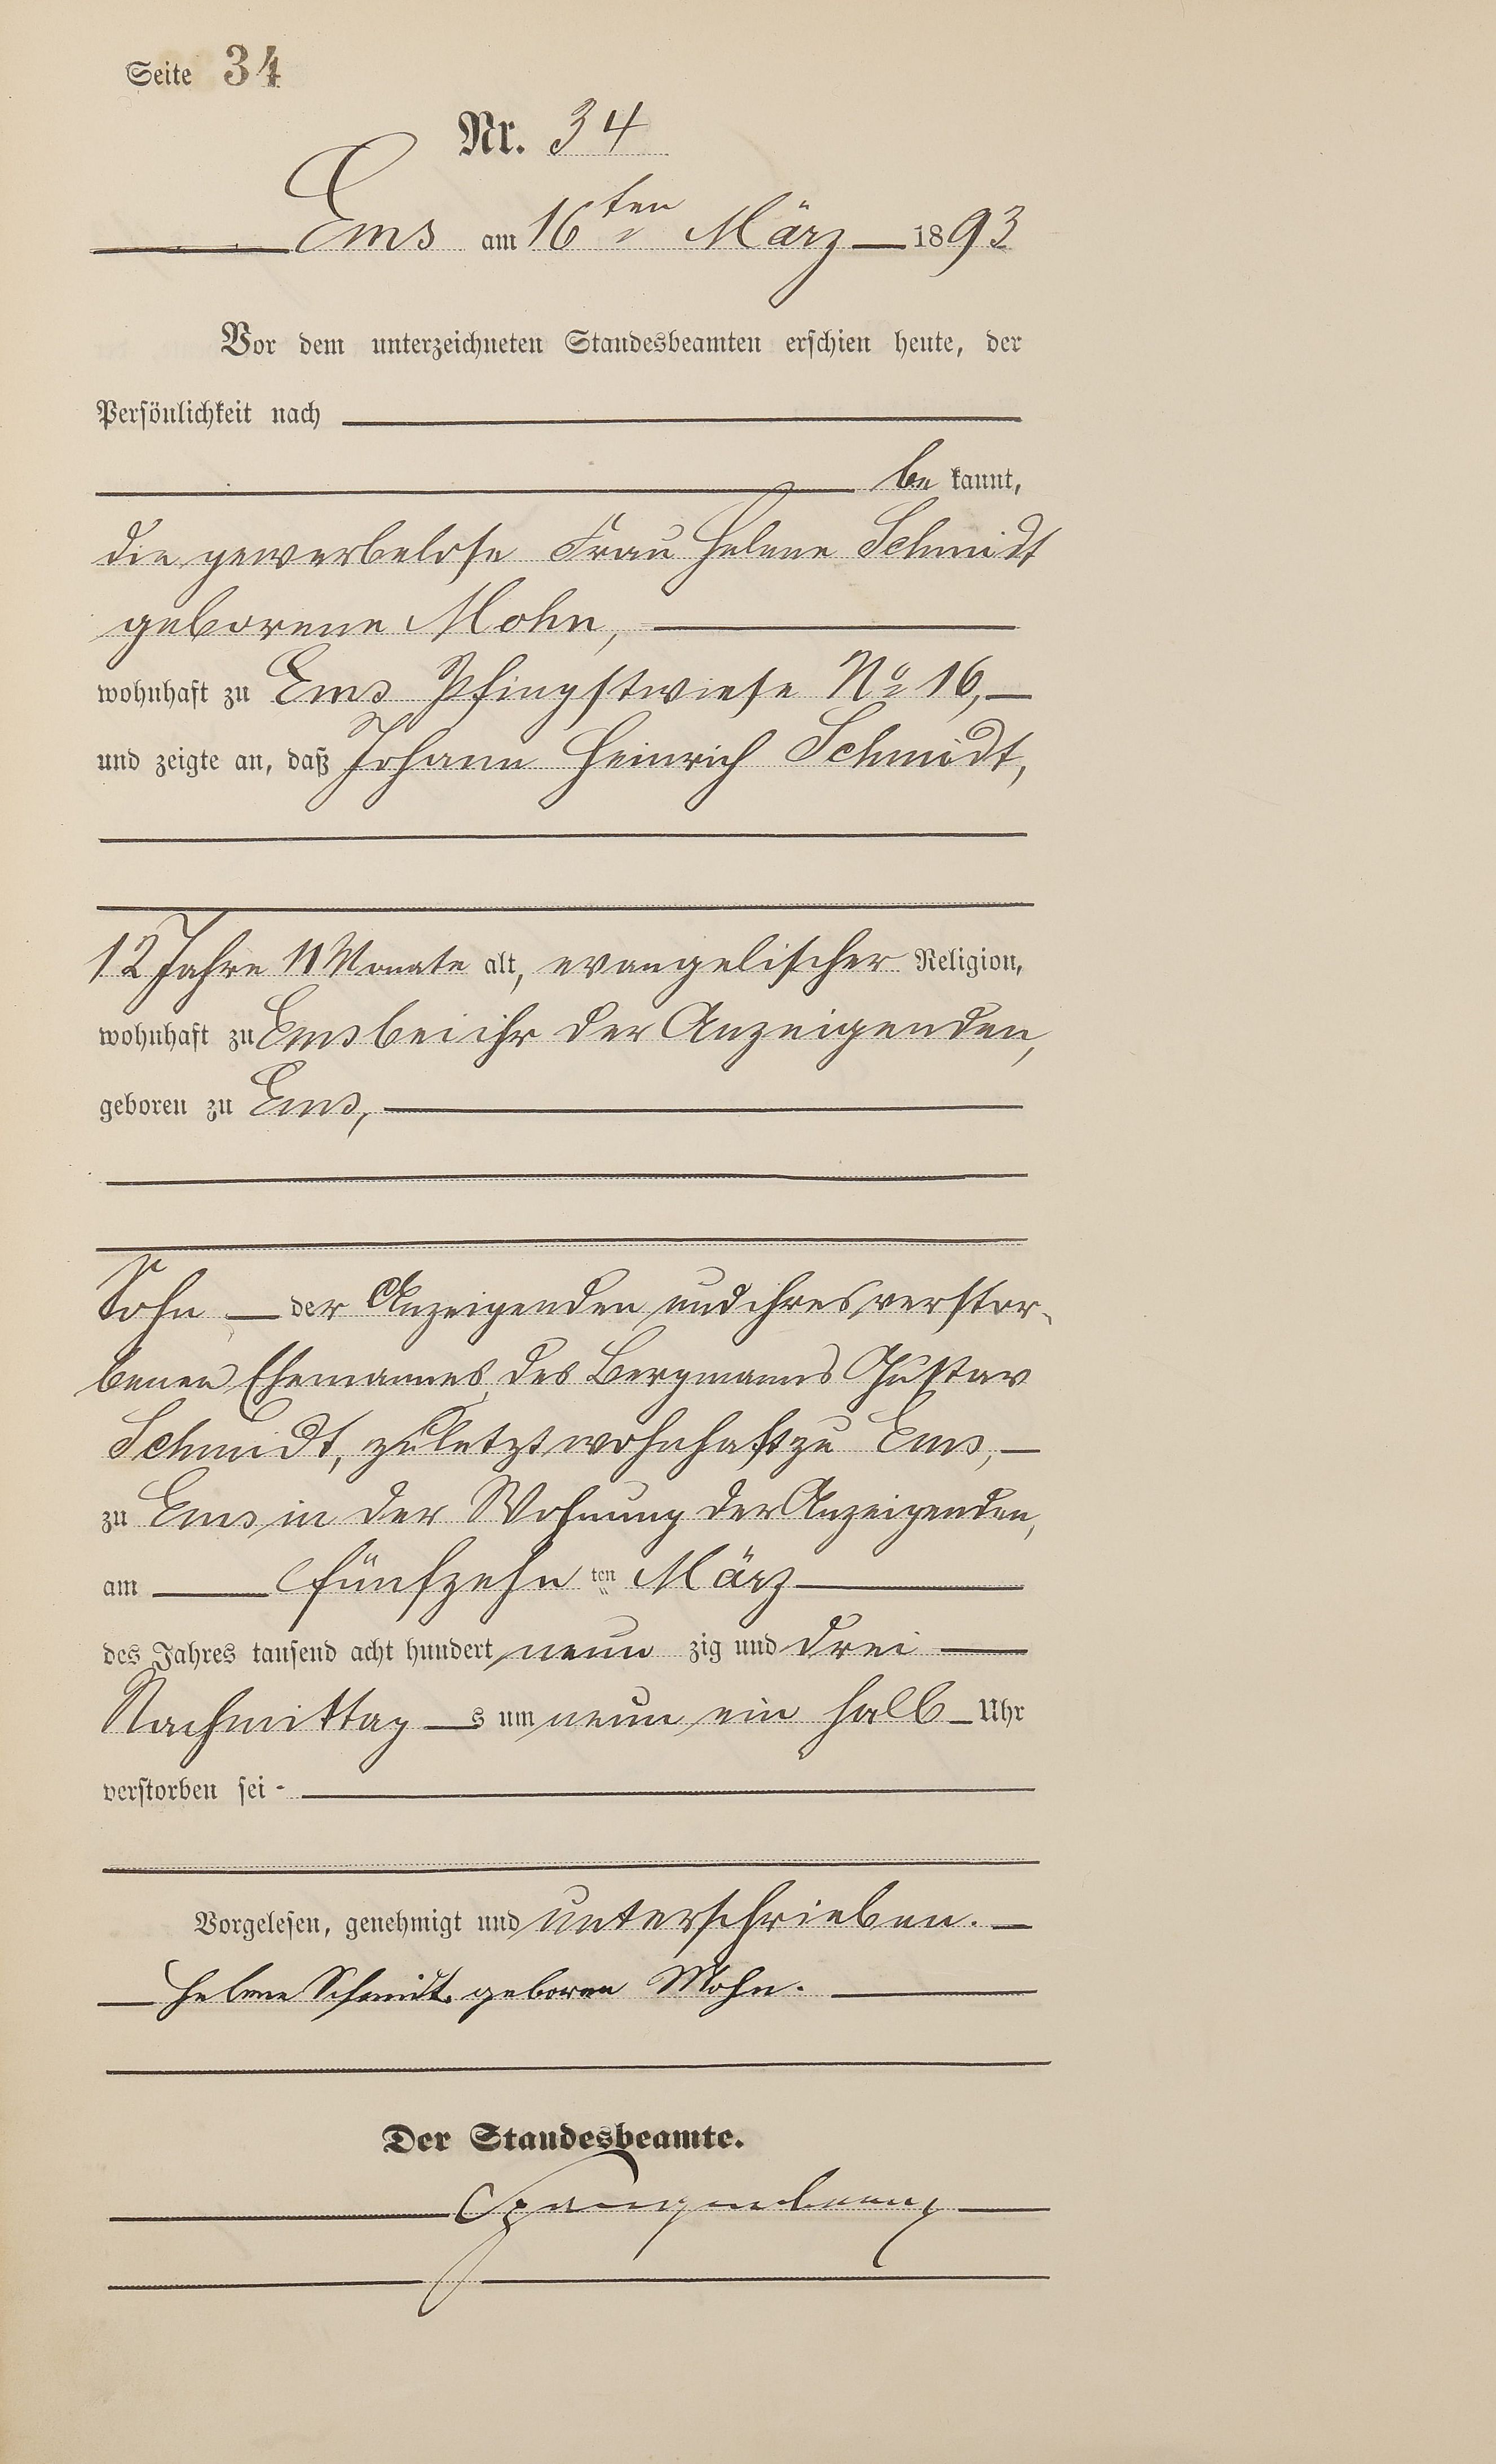 Seite 34
Nr. 34
Ems am 16ten März 1893
Vor dem unterzeichneten Standesbeamten erschien heute, der
Persönlichkeit nach
be kannt,
die gewerbelose Frau Helene Schmidt
geborene Mohn,
wohnhaft zu Ems Pfingstwiese No 16,
und zeigte an, daß Johann Heinrich Schmidt,
12 Jahre 11 Monate alt, evangelischer Religion,
wohnhaft zu Ems bei ihr der Anzeigenden,
geboren zu Ems,
Sohn der Anzeigenden und ihres verstor-
benen Ehemannes, des Bergmanns Gustav
Schmidt, zuletzt wohnhaft zu Ems,
zu Ems in der Wohnung der Anzeigenden,
am fünfzehn ten März
des Jahres tausend acht hundert neun zig und drei
Nachmittag s um neun ein halb Uhr
verstorben sei
Vorgelesen, genehmigt und unterschrieben.
Helene Schmidt geboren Mohn.
Der Standesbeamte.